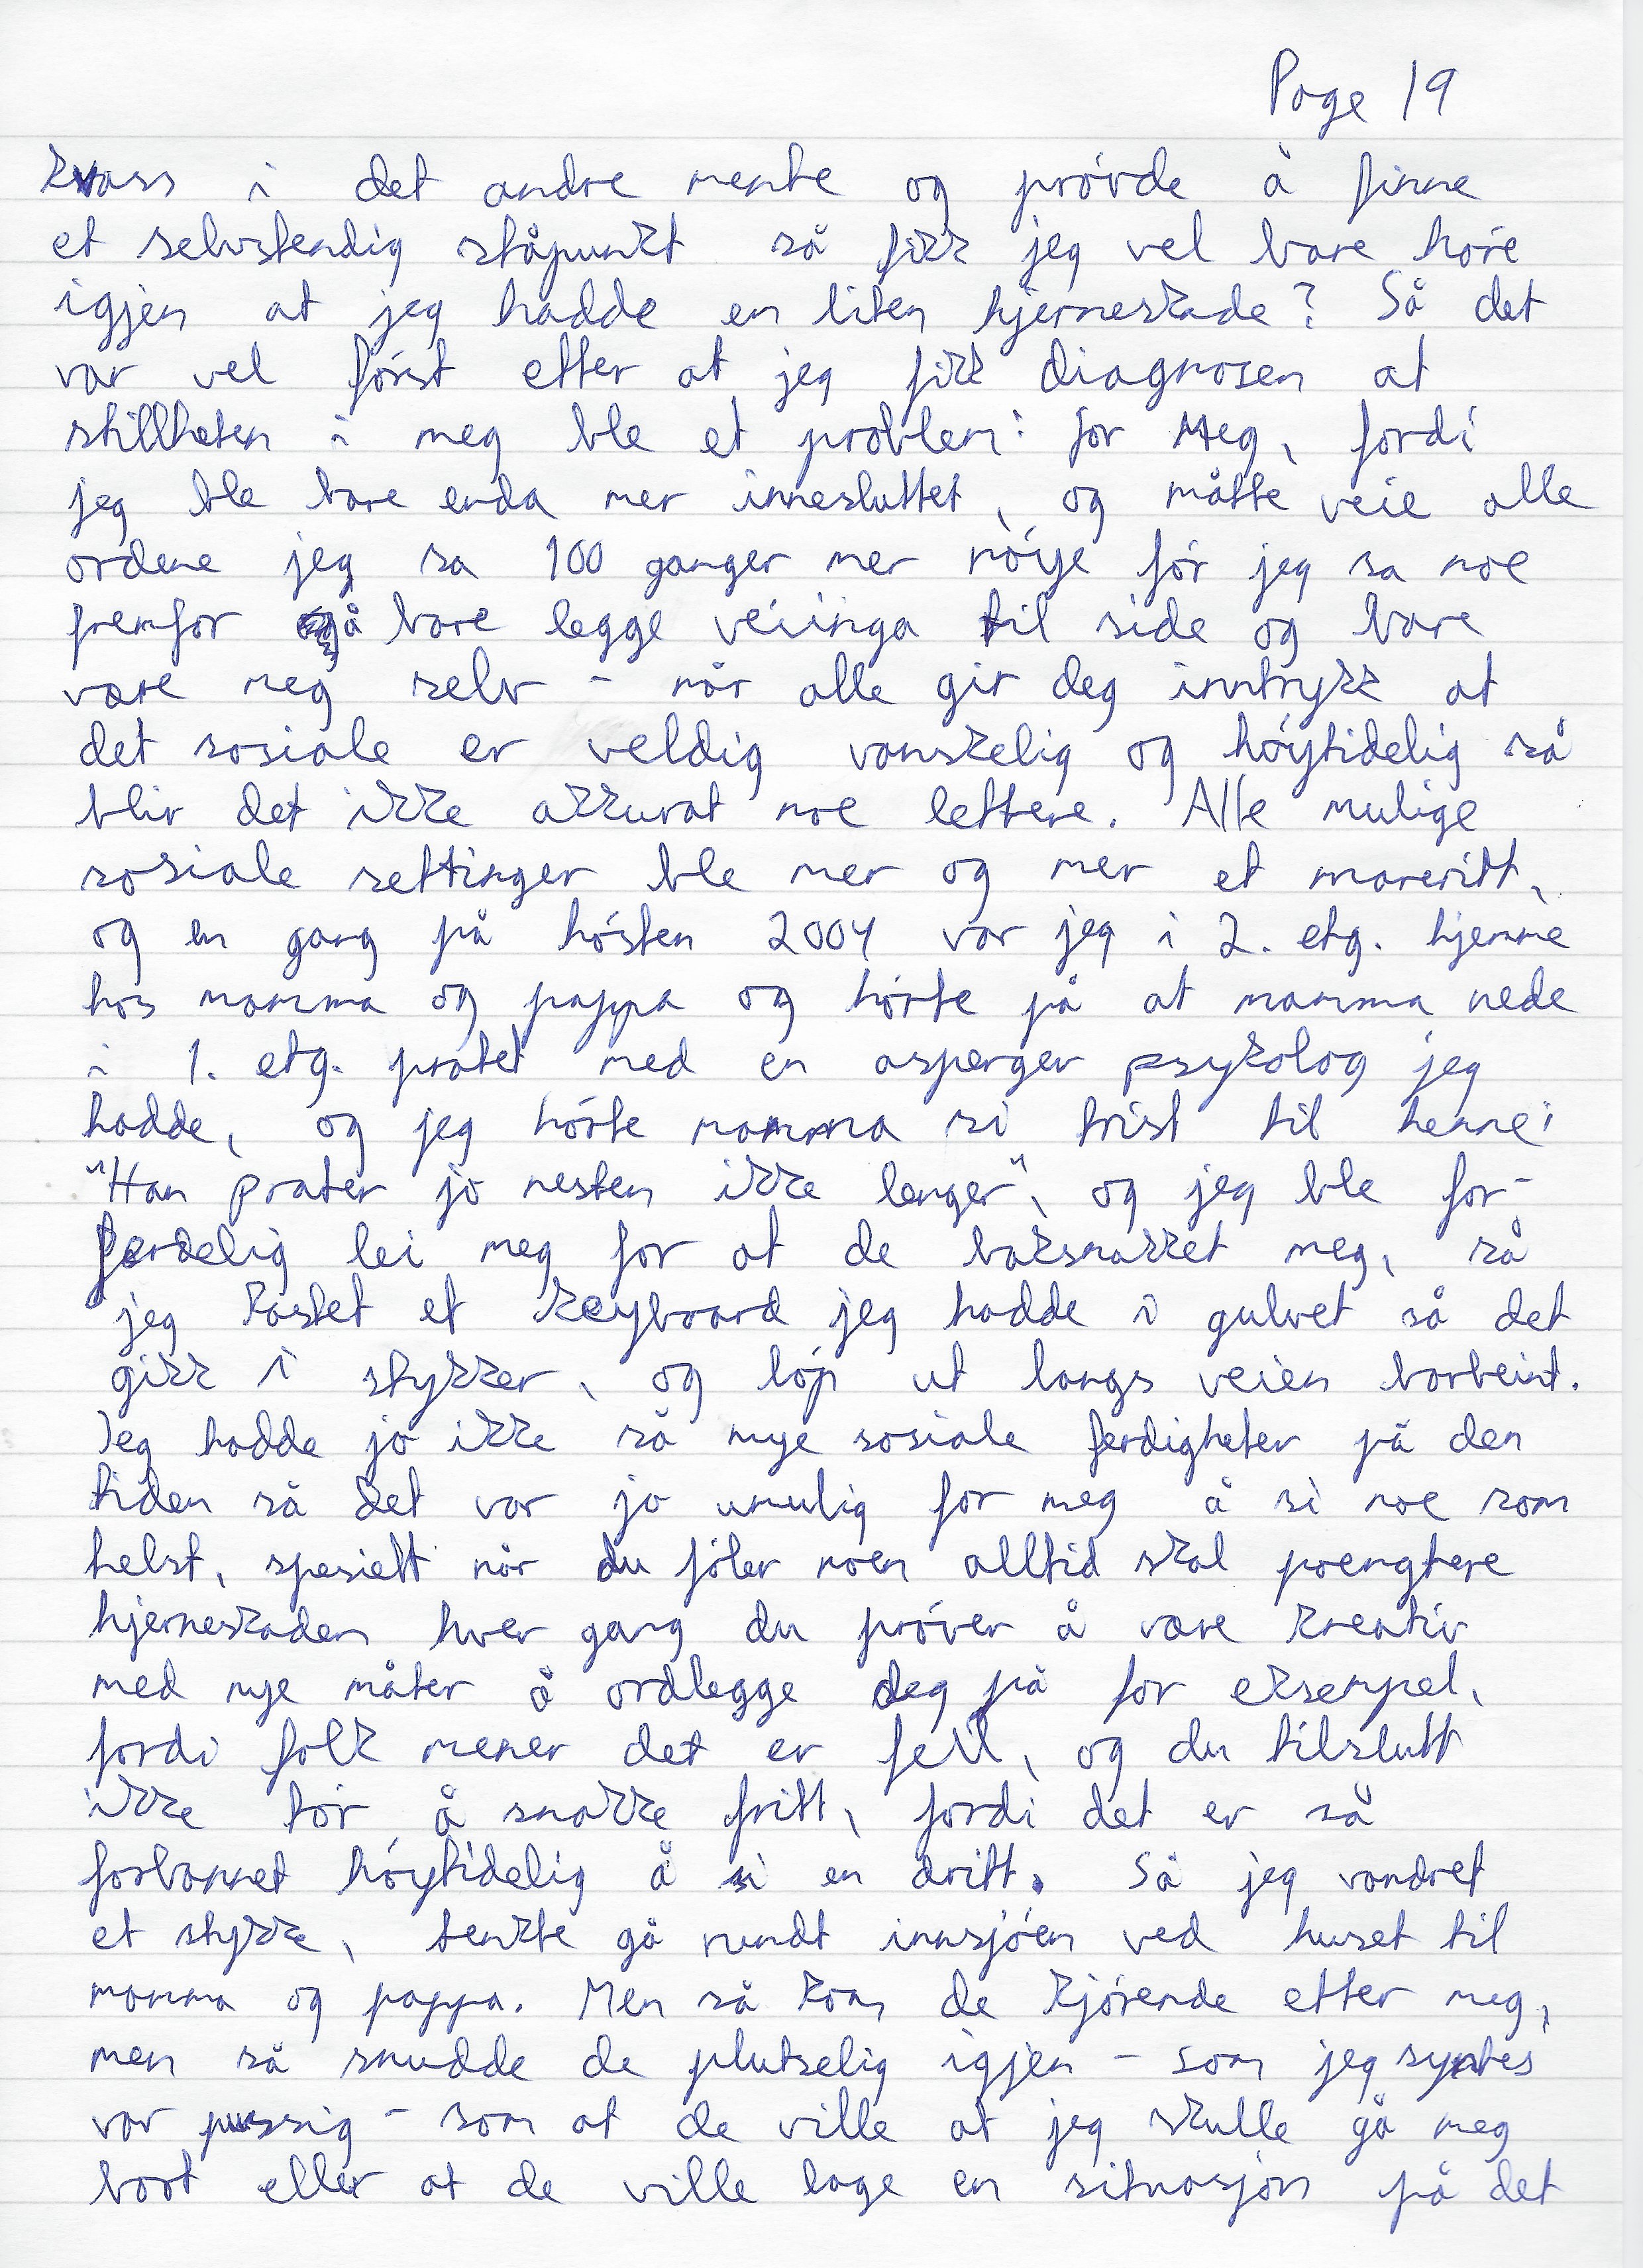 Page 19
kvass i det andre mente og prøvde å finne
et selvstendig ståpunkt så fikk jeg vel bare høre
igjen at jeg hadde en liten hjerneskade? Så det
var vel først etter at jeg fikk diagnosen at
stillheten i meg ble et problem: for Meg, fordi
jeg ble bare enda mer innesluttet, og måtte veie alle
ordene jeg sa 100 ganger mer nøye før jeg sa noe
fremfor å bare legge veiinga til side og bare
være meg selv - når alle gir deg inntrykk at
det sosiale er veldig vanskelig og høytidelig så
blir det ikke akkurat noe lettere. Alle mulige
sosiale settinger ble mer og mer et mareritt,
og en gang på høsten 2004 var jeg i 2. etg. hjemme
hos mamma og pappa og hørte på at mamma nede
i 1. etg. pratet med en asperger psykolog jeg
hadde, og jeg hørte mamma si trist til henne:
"Han prater jo nesten ikke lenger", og jeg ble for-
ferdelig lei meg for at de baksnakket meg, så
jeg kastet et keyboard jeg hadde i gulvet så det
gikk i stykker, og løp ut langs veien barbeint.
Jeg hadde jo ikke så mye sosiale ferdigheter på den
tiden så det var jo umulig for meg å si noe som
helst, spesielt når du føler noen alltid skal poengtere
hjerneskaden hver gang du prøver å være kreativ
med nye måter å ordlegge deg på for eksempel,
fordi folk mener det er feil, og du tilslutt
ikke tør å snakke fritt, fordi det er så
forbannet høytidelig å si en dritt. Så jeg vandret
et stykke, tenkte gå rundt innsjøen ved huset til
mamma og pappa. Men så kom de kjørende etter meg,
men så snudde de plutselig igjen - som jeg syntes
var pussig - som at de ville at jeg skulle gå meg
bort eller at de ville lage en situasjon på det